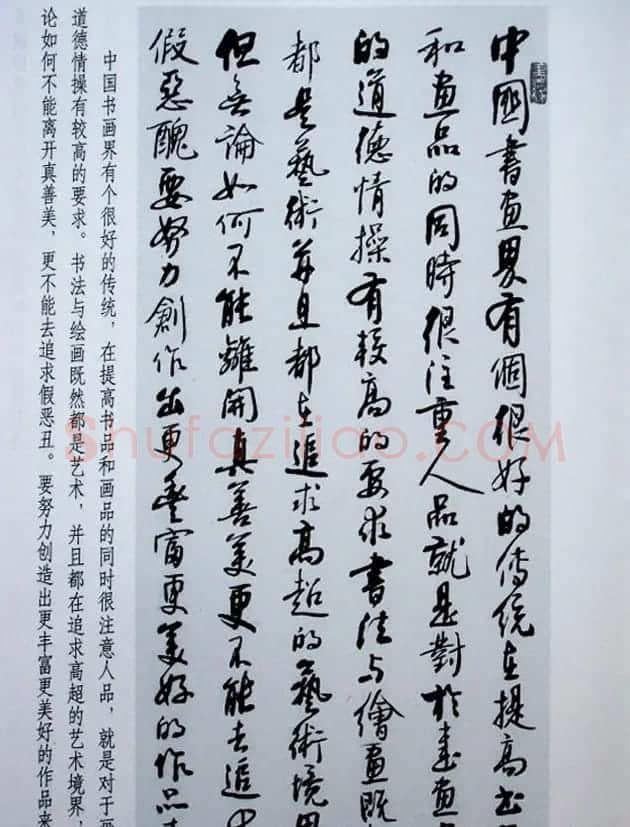 中國書画界有個很好的傳統在提高书
和画品的同時很注重人品就是對於書画
的道德情操有較高的要求書法与繪画既
都是藝術并且都在追求高超的藝術境界
但無論如何不能離開真善美更不能去追求
假惡醜要努力創作出更豐富更美好的作品
中国书画界有个很好的传统，在提高书品和画品的同时很注意人品，就是对于
道德情操有较高的要求。书法与绘画既然都是艺术，并且都在追求高超的艺术境界，
论如何不能离开真善美，更不能去追求假恶丑。要努力创造出更丰富更美好的作品来
Shufaziliao.COM